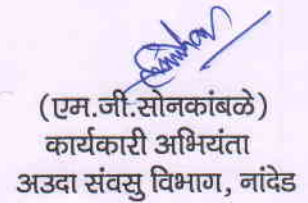 (एम.जी.सोनकांबळे)
कार्यकारी अभियंता
अउदा संवसु विभाग, नांदेड